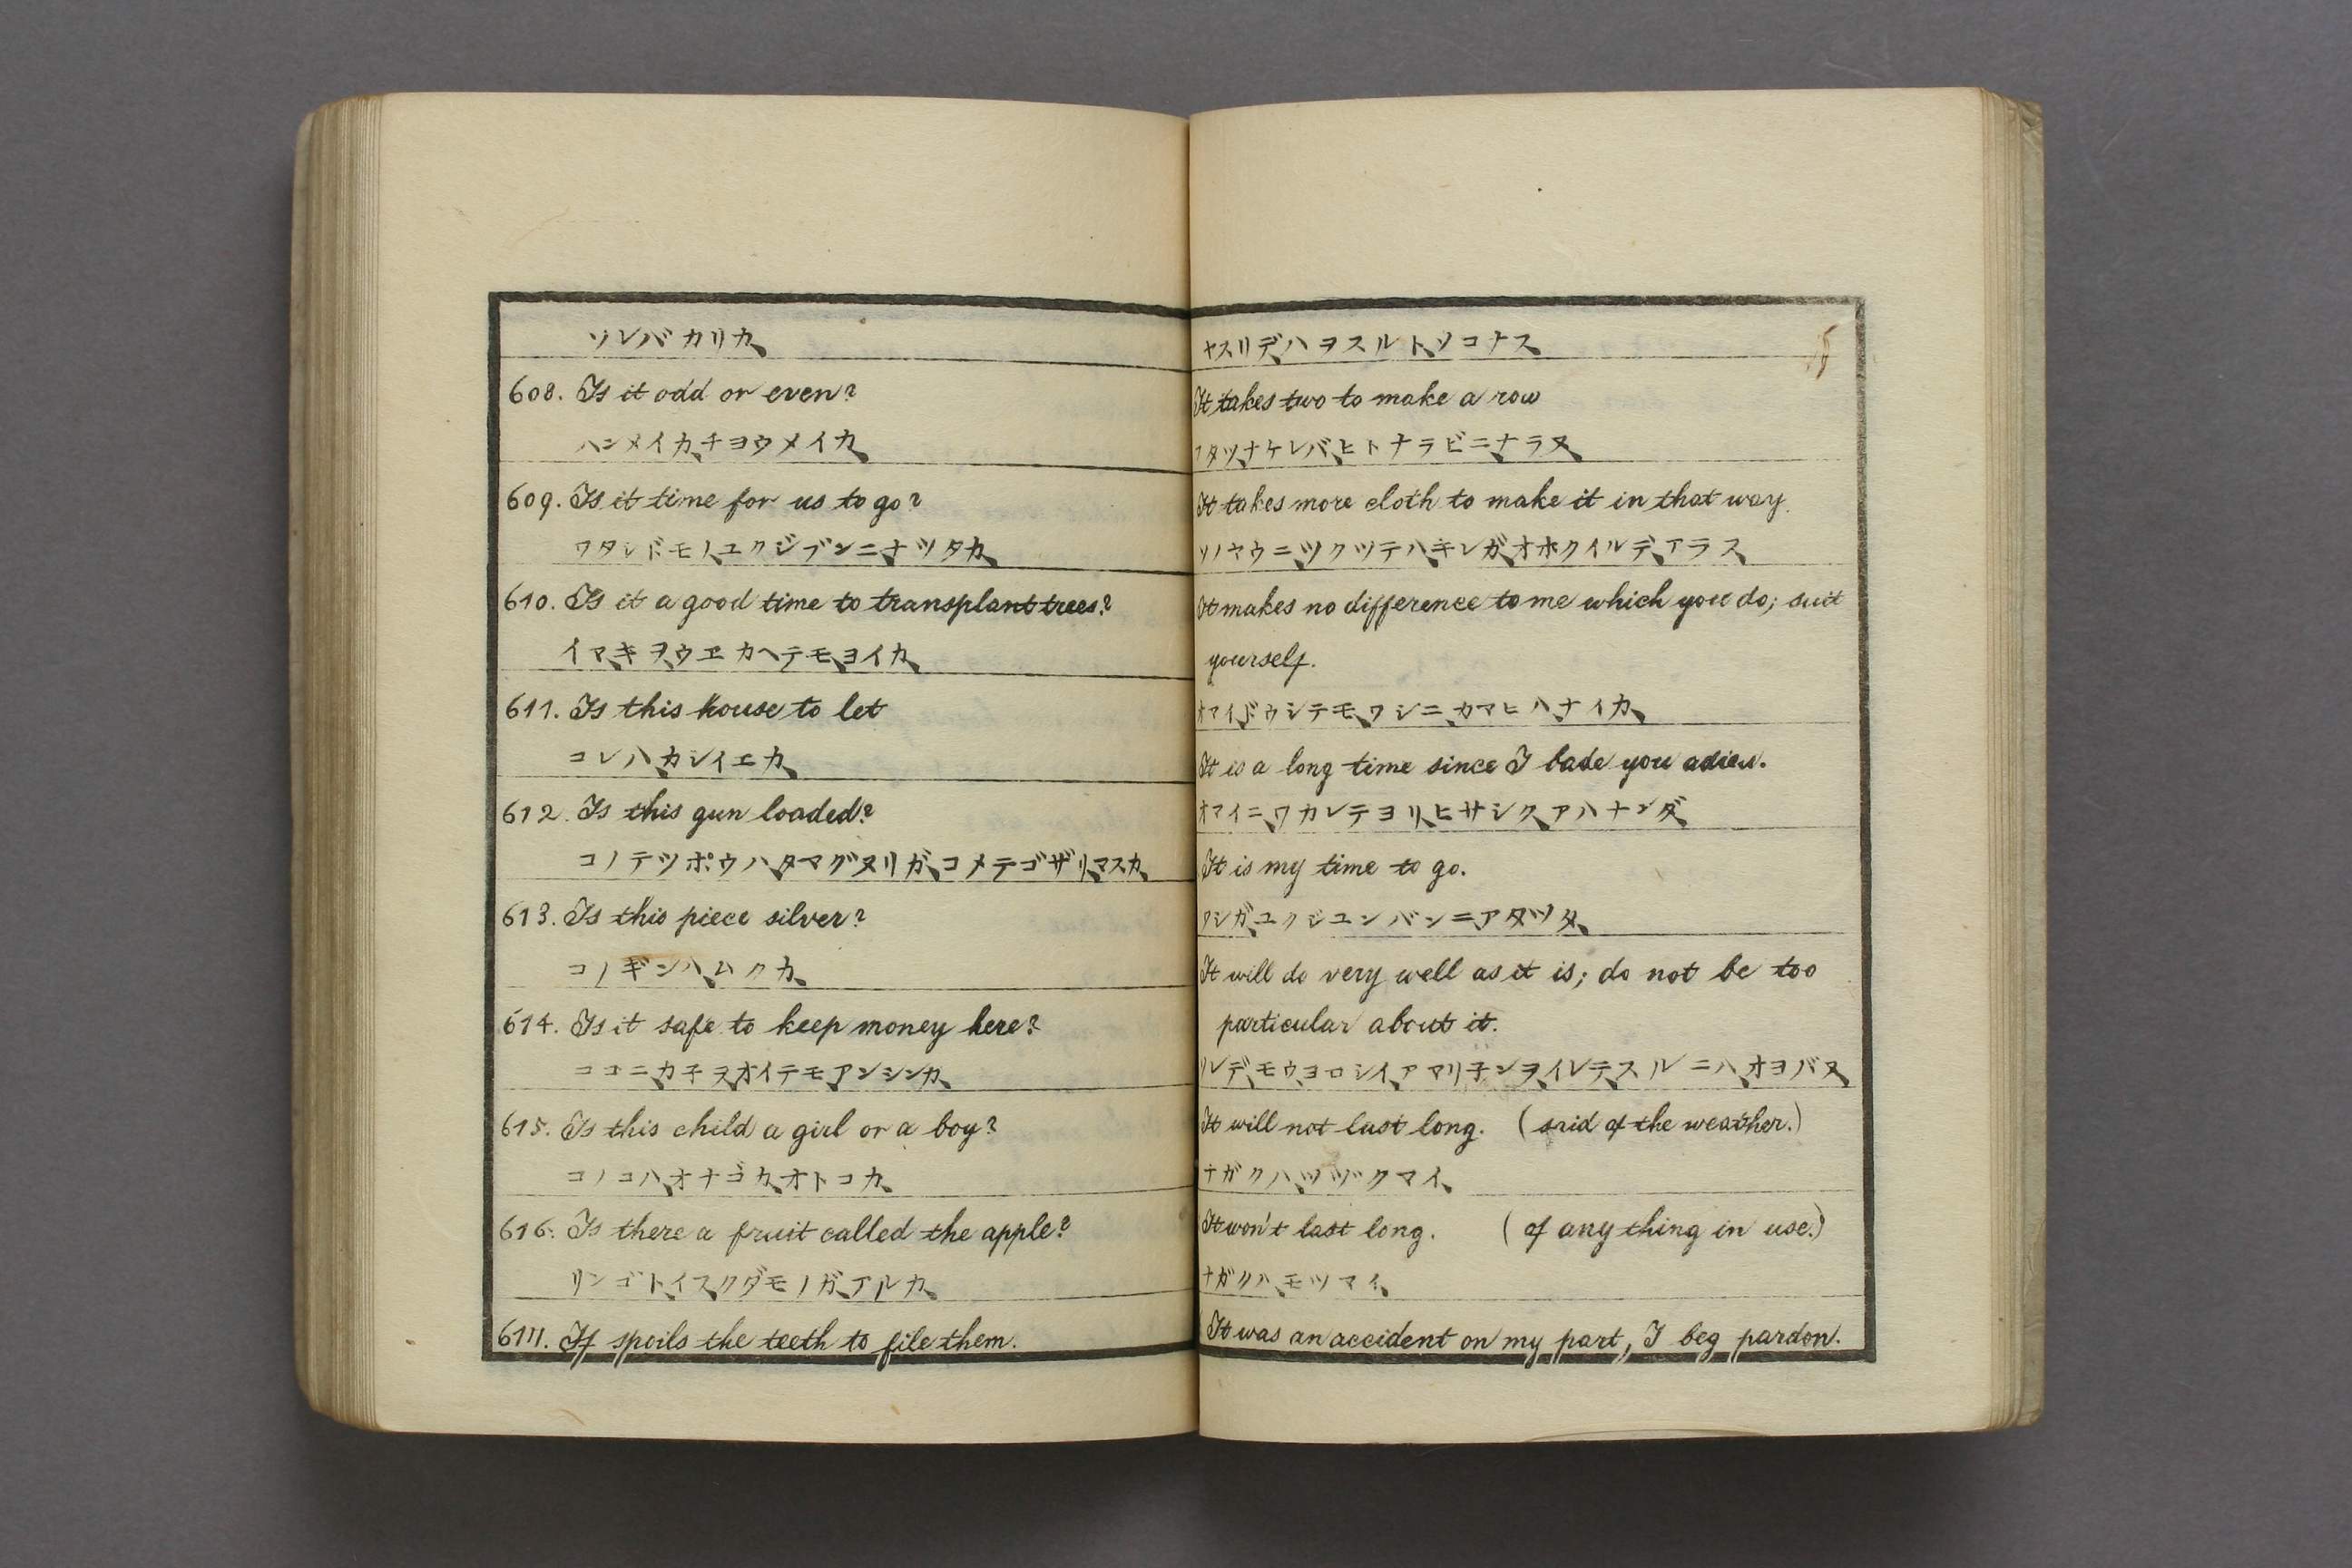 ソレバカリカ、
608. Is it odd or even?
ハンメイカ、チヨウメイカ、
609. Is it time for us to go?
ワタシドモノ、ユクジブンニ、ナツタカ、
610. Is it a good time to transplant trees?
イマ、キヲ、ウヱカヘテモ、ヨイカ、
611. Is this house to let
コレハ、カシイエカ、
612. Is this gun loaded?
コノテツポウハ、タマグスリガ、コメテゴザリ、マスカ、
613. Is this piece silver?
コノギンハ、ムクカ、
614. Is it safe to keep money here?
ココニ、カ子ヲ、オイテモ、アンシンカ、
615. Is this child a girl or a boy?
コノコハ、オナゴカ、オトコカ、
616. Is there a fruit called the apple?
リンゴト、イス、クダモノガ、アルカ、
617. If spoils the teeth to file them.
ヤスリデ、ハヲスルト、ソコナス、
It takes two to make a row
フタツ、ナケレバ、ヒトナラビニ、ナラヌ、
It takes more cloth to make it in that way.
ソノヤウニ、ツクツテハ、キレガ、オホクイルデ、アラス、
It makes no difference to me which you do; suit
yourself.
オマイ、ドウシテモ、ワシニ、カマヒハ、ナイカ、
It is a long time since I bade you adieu.
オマイニ、ワカレテヨリ、ヒサシク、アハナンダ、
It is my time to go.
ワシガ、ユクジユンバンニ、アタツタ、
It will do very well as it is; do not be too
particular about it.
ソレデ、モウ、ヨロシイ、アマリ、子ンヲ、イレテ、スルニハ、オヨバヌ、
It will not last long. (said of the weather.)
ナガクハ、ツヅクマイ、
It won't last long. (of any thing in use.)
ナガクハ、モツマイ、
It was an accident on my part, I beg pardon.